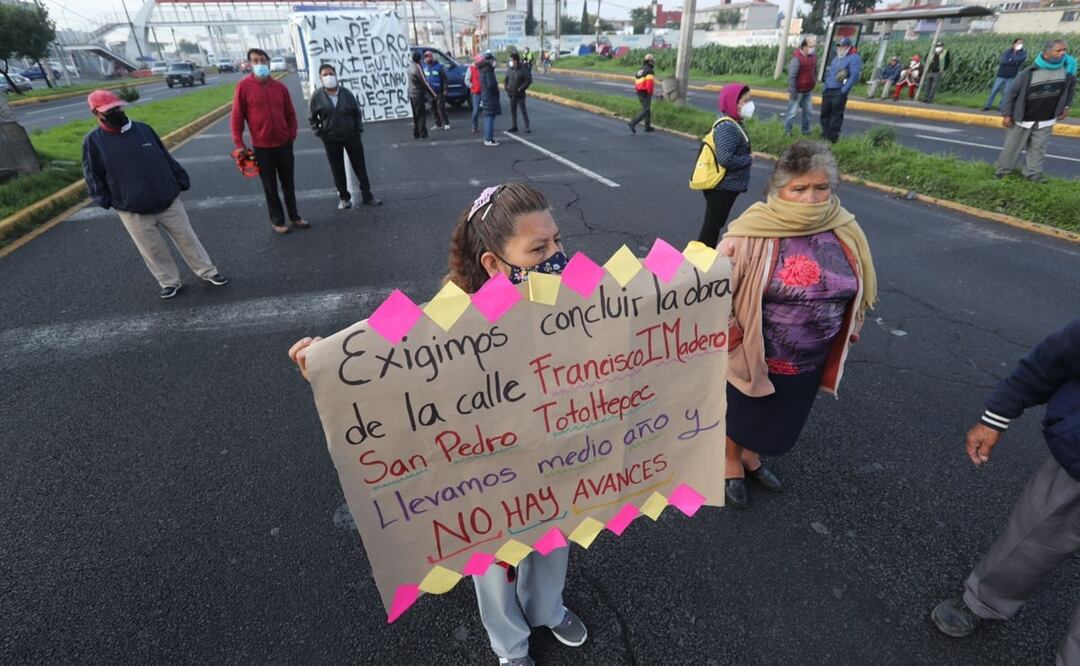 DE
SAN PEDRO
EXIGIMOS
Exigimos concluir la obra
de la calle Francisco I Madero
San Pedro Totoltepec
Llevamos medio año y
NO HAY AVANCES